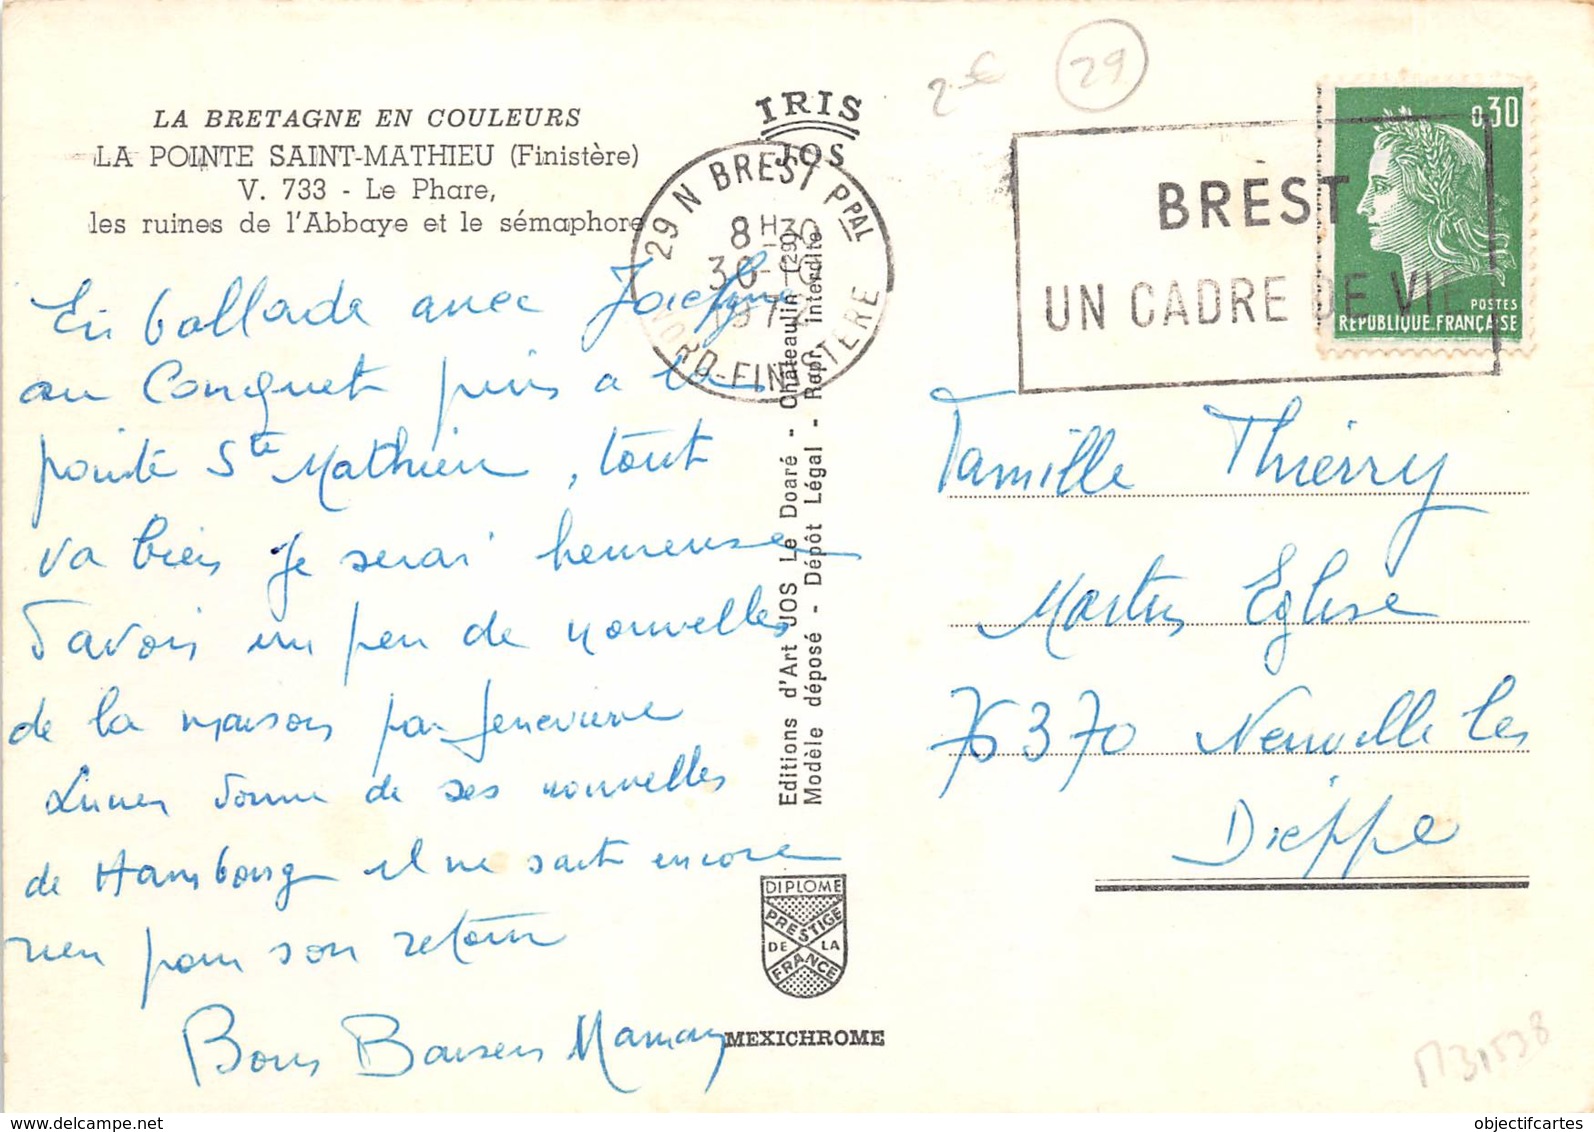 LA BRETAGNE EN COULEURS
LA POINTE SAINT-MATHIEU (Finistère)
V. 733 - Le Phare,
les ruines de l'Abbaye et le sémaphore
En ballade avec Jocelyne
au Conquet puis a la
pointe Ste Mathieu, tout
va bien Je serai heureuse
d'avoir un peu de nouvelles
de la maison par Genevieve
donne de ses nouvelles
de Hambourg il ne sait encore
rien pour son retour
Bons Baisers Maman
IRIS
JOS
29 N BREST PPAL
8H30
30-
1972
NORD-FINISTERE
Editions d'Art JOS Le Doaré - Chateaulin (29)
Modèle déposé - Dépôt Légal - Repr. interdite
DIPLOME
PRESTIGE
DE LA
FRANCE
MEXICHROME
2 €
29
BREST
UN CADRE DE VIE
0,30
POSTES
REPUBLIQUE.FRANÇAISE
Famille Thierry
Martin Eglise
76370 Neuville les
Dieppe
objectifcartes